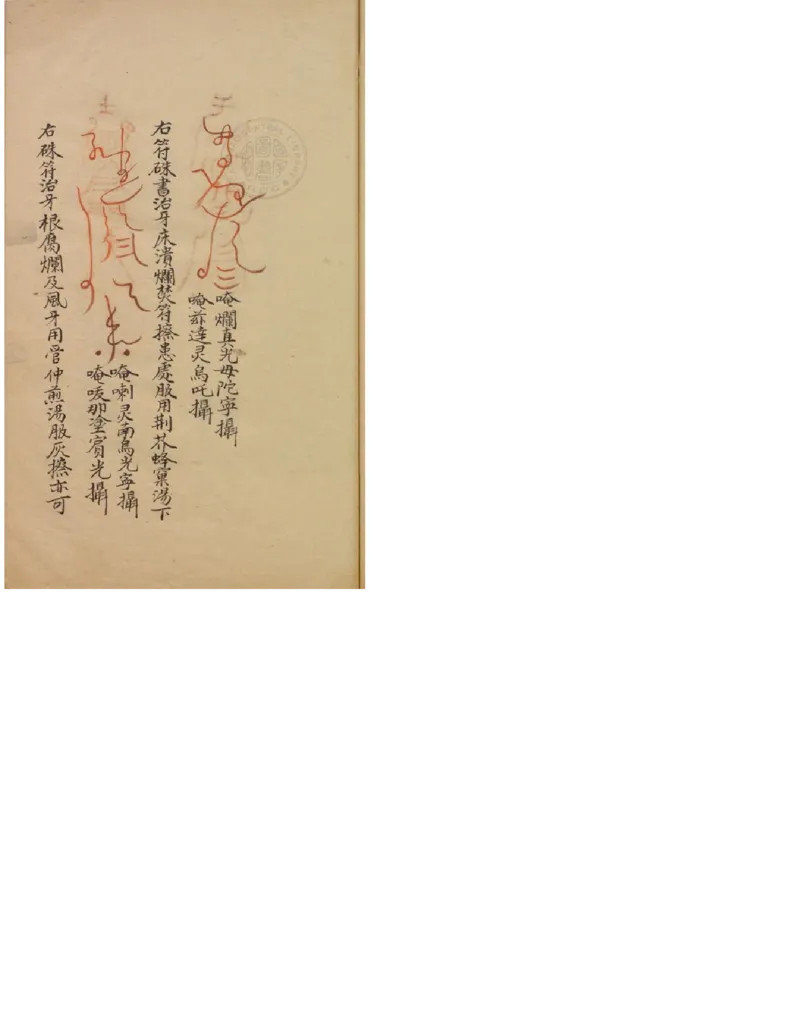 唵爛真光毋陀寧攝
唵茲達灵烏吒攝
右符硃書治牙床潰爛焚符擦患處服用荆芥蜂窠湯下
唵喇灵南烏光寧攝
唵嗳那塗賓光攝
右硃符治牙根腐爛及風牙用管仲煎湯服灰擦亦可